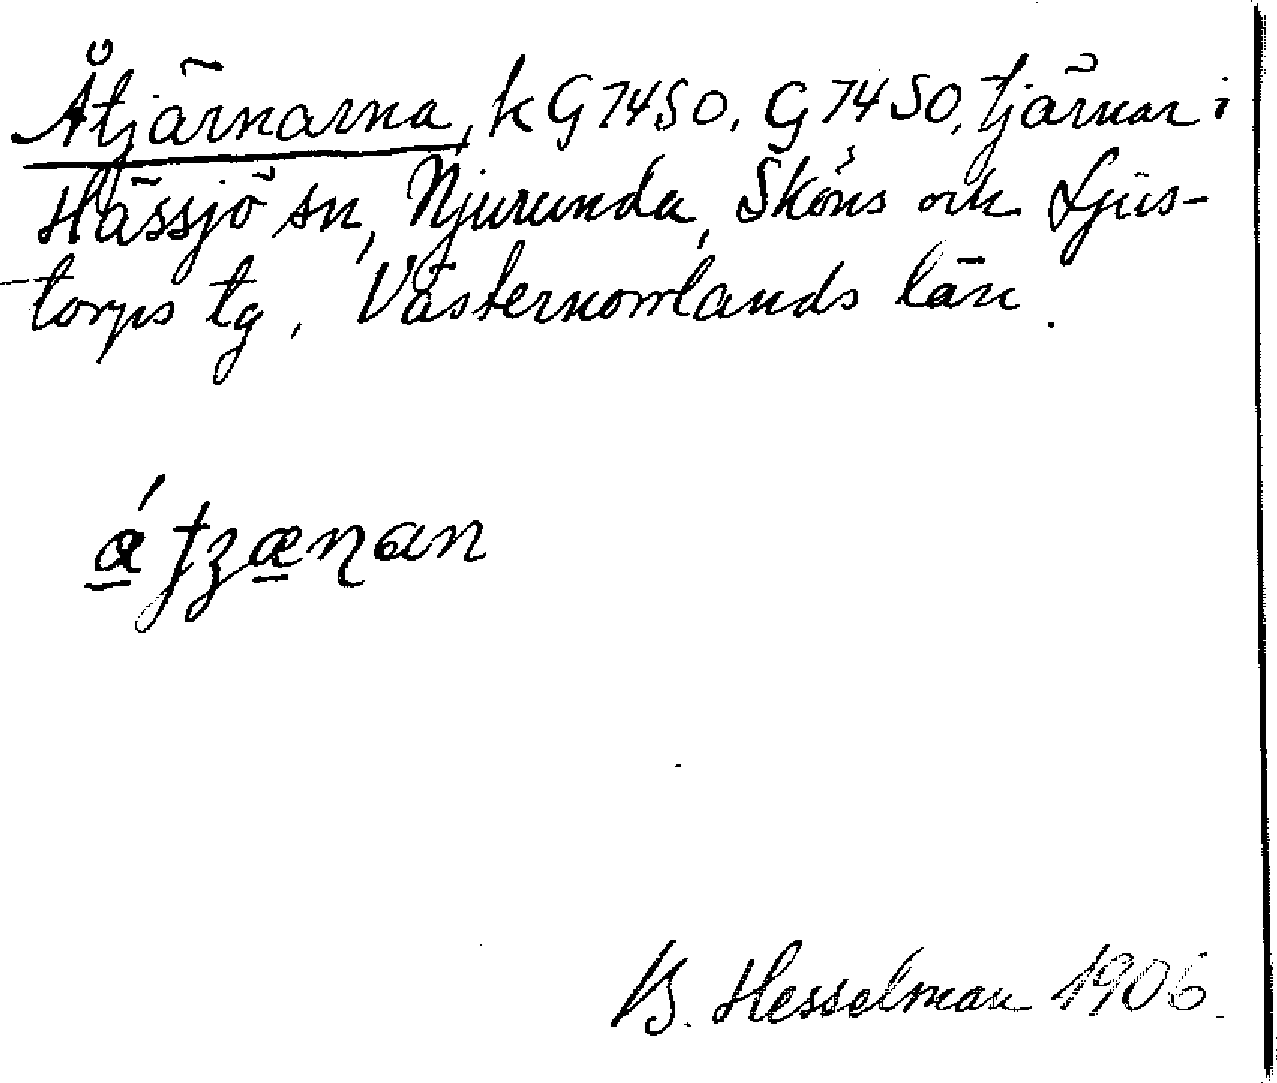 Åtjärnarna, k G 74 SO, G 74 SO, tjärnar i
Hässjö sn, Njurunda, Sköns och Ljus-
torps tg, Västernorrlands län.
B. Hesselman 1906.